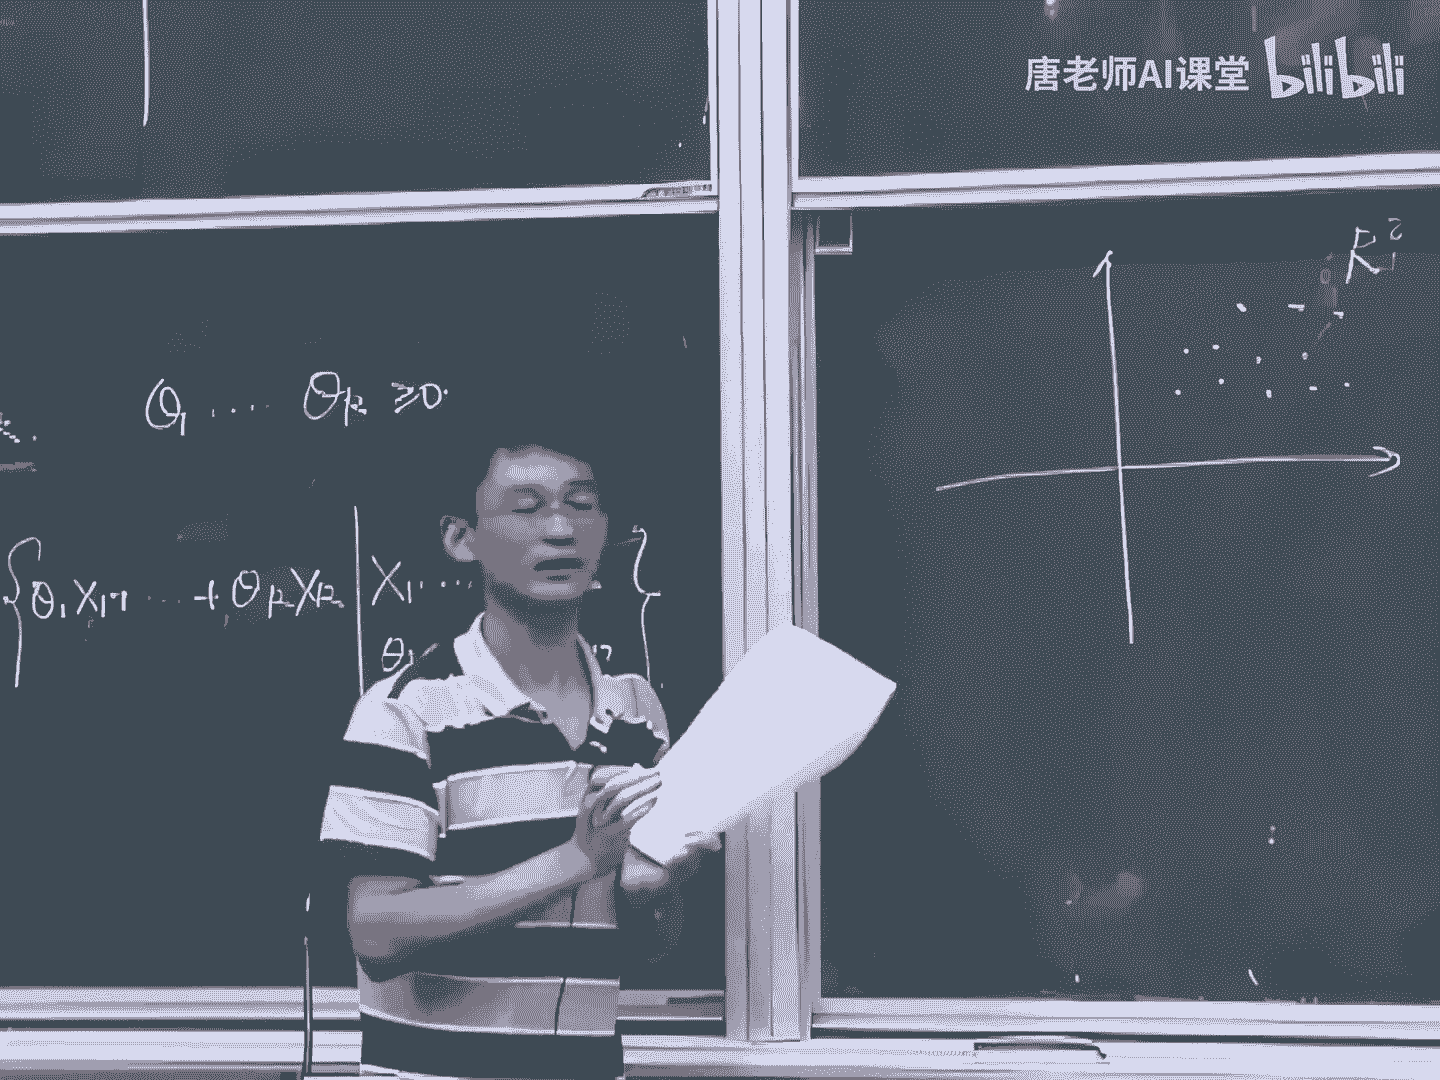 唐老师AI课堂 bilibili
R²
θ₁ .... θₖ ≥0.
{θ₁X₁+ ... +θₖXₖ | X₁ .... }
θ₁